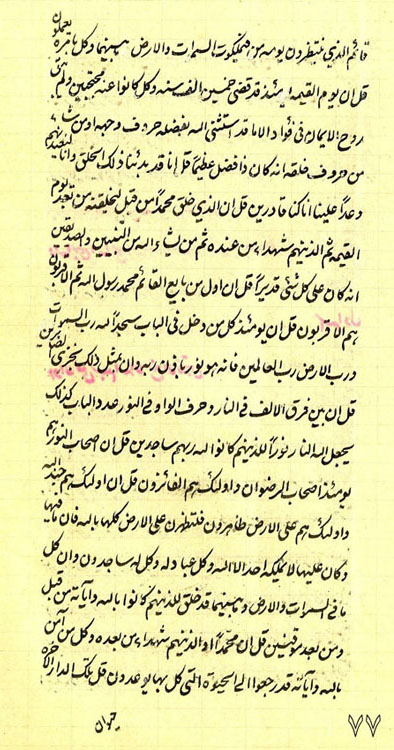 قائم الذي ينتظرون يومه من في ملكوت السموات والارض وما بينهما وكل بامره يعملون
قل ان يوم القيمة يومئذ قد قضى خمسين الف سنة وكل كانوا عنه محتجبين ولم
روح الايمان في فؤاد الا ما قد استثنى الله بفضله حروف وجهه او من شاء
من حروف خلقه انه كان ذا فضل عظيما قل انا قد بدئنا ذلك الخلق وانا لنعيدنهم
وعدا علينا انا كنا قادرين قل ان الذي خلق محمدا من قبل ليخلقنه من بعد يوم
القيمة ثم الذينهم شهداء من عنده ثم من شاء الله من النبيين والصديقين
انه كان على كل شئ قديرا قل ان اول من بايع القائم محمد رسول الله ثم الاقربون
هم الاقربون قل ان يومئذ كل من دخل في الباب سجدا لله رب السموات
ورب الارض رب العالمين فانه هو يورث باذن ربه وان بمثل ذلك نجزي
قل ان بين فرق الالف في النار وحرف الواو في النور عدد الباب كذلك
يجعل الله النار نورا للذينهم كانوا لله ربهم ساجدين قل ان اصحاب النور هم
يومئذ اصحاب الرضوان واولئك هم الفائزون قل ان اولئك هم جند الله
واولئك هم على الارض ظاهرون فلتطهرن على الارض كلها بالله فان ما فيها
وكان عليها لا يملكه احد الا الله وكل عباد له وكل له ساجدون وان كل
ما في السموات والارض وما بينهما قد خلق للذينهم كانوا بالله وآياته من قبل
ومن بعد موقنين قل ان محمدا والذينهم شهداء من بعده وكل من آمن
بالله وآياته قد رجعوا الى الحيوة التي كل بها يوعدون قل تلك الدار الآخرة
٧٧